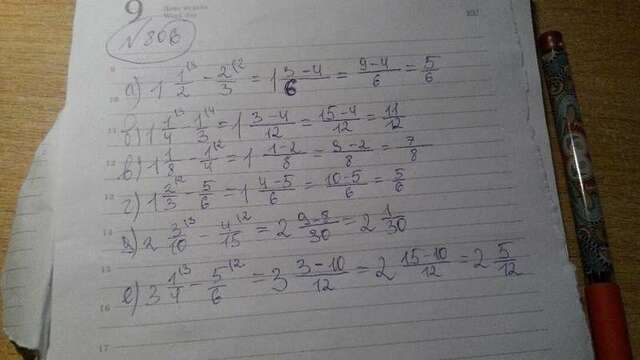 9
№ 806
а) 1 1/2 - 2/3 = 1 3-4/6 = 9-4/6 = 5/6
б) 1 1/4 - 1/3 = 1 3-4/12 = 15-4/12 = 11/12
в) 1 1/8 - 1/4 = 1 1-2/8 = 9-2/8 = 7/8
г) 1 2/3 - 5/6 = 1 4-5/6 = 10-5/6 = 5/6
д) 2 3/10 - 4/15 = 2 9-8/30 = 2 1/30
е) 3 1/4 - 5/6 = 3 3-10/12 = 2 15-10/12 = 2 5/12
16
17